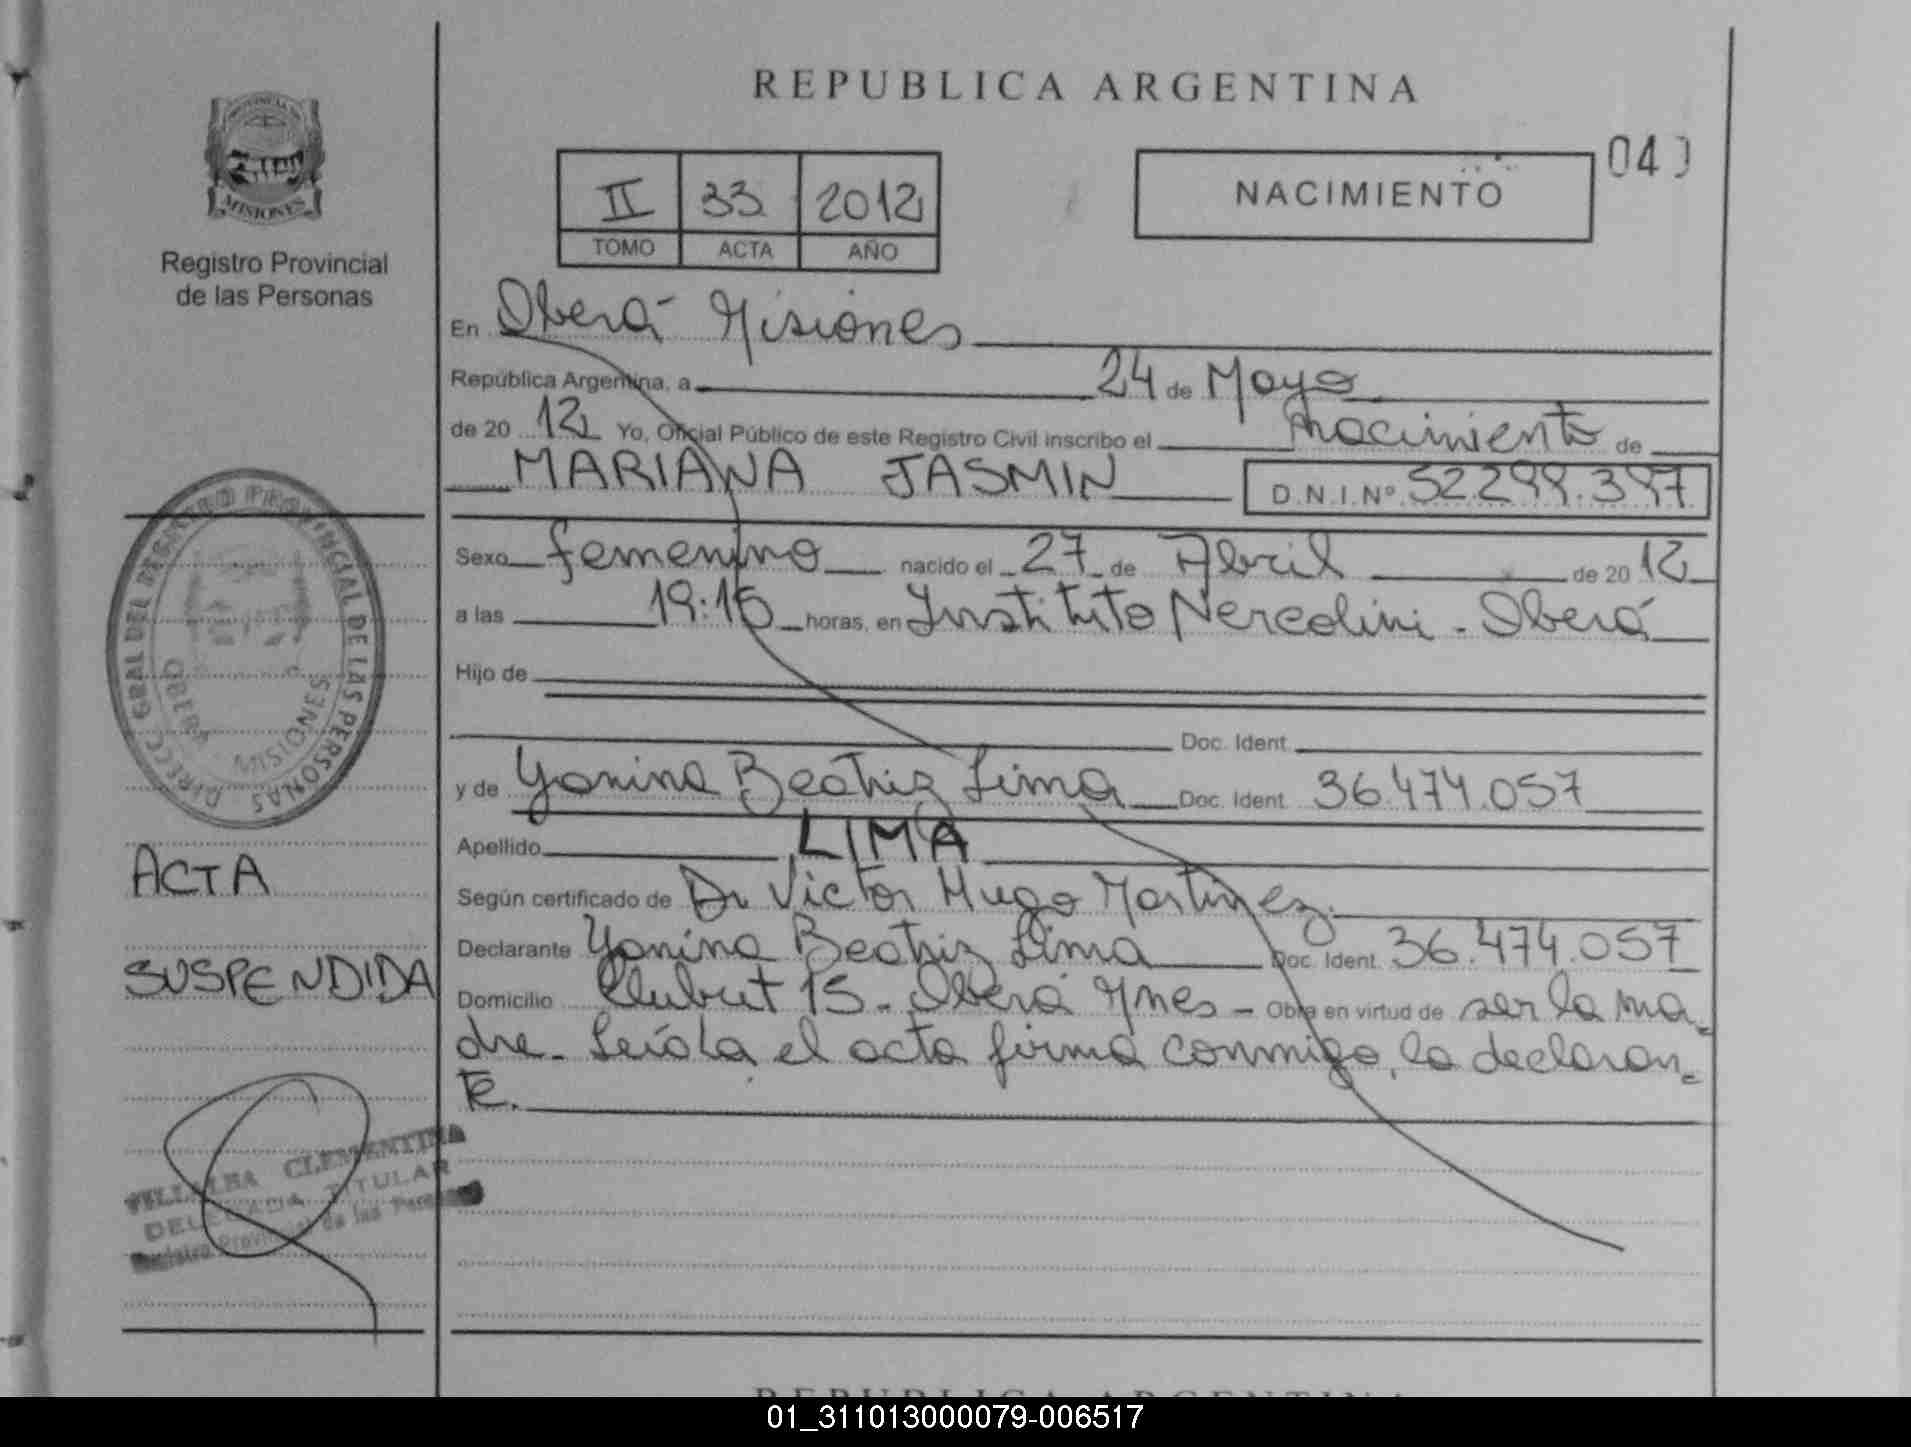 REPUBLICA ARGENTINA
MISIONES
Registro Provincial
de las Personas
II 33 2012
TOMO ACTA AÑO
NACIMIENTO
04
En Oberá Misiones
República Argentina, a 24 de Mayo
de 20 12 Yo, Oficial Público de este Registro Civil inscribo el nacimiento de
MARIANA JASMIN D.N.I.Nº 52.299.397
Sexo femenino nacido el 27 de Abril de 20 12
a las 19:15 horas, en Instituto Nercolini - Oberá
Hijo de
Doc. Ident.
y de Yanina Beatriz Lima Doc. Ident. 36.474.057
Apellido LIMA
Según certificado de Dr Victor Hugo Martinez.
Declarante Yanina Beatriz Lima Doc. Ident. 36.474.057
Domicilio Chubut 15 - Oberá Mnes - Obra en virtud de ser la ma-
dre - Leída el acta firma conmigo, la declaran-
te.
DIRECC. GRAL DEL REGISTRO PROVINCIAL DE LAS PERSONAS
OBERA MISIONES
ACTA
SUSPENDIDA
VILLALBA CLEMENTINA
DELEGADA TITULAR
Registro Provincial de las Personas
REPUBLICA ARGENTINA
01_311013000079-006517